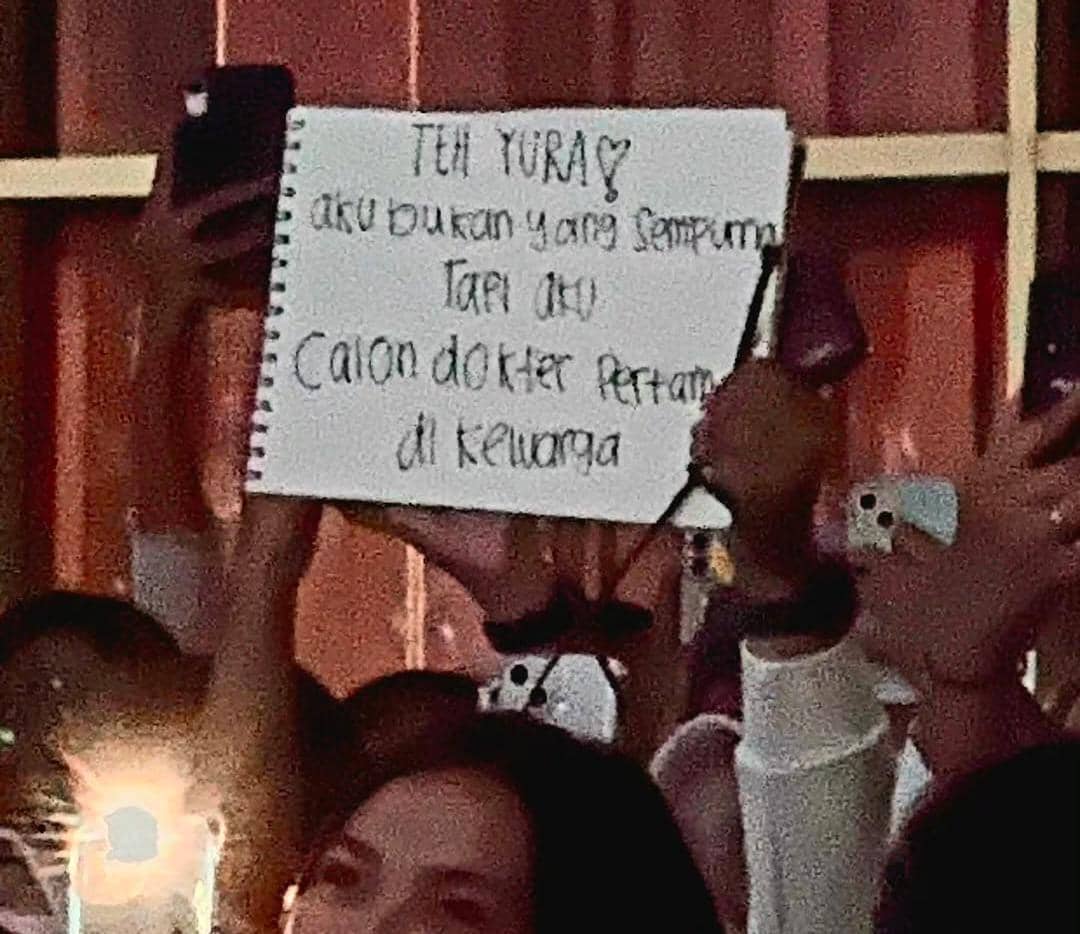 TEH YURA♡
aku bukan yang sempurna
Tapi aku
Calon dokter Pertama
di Kewarga